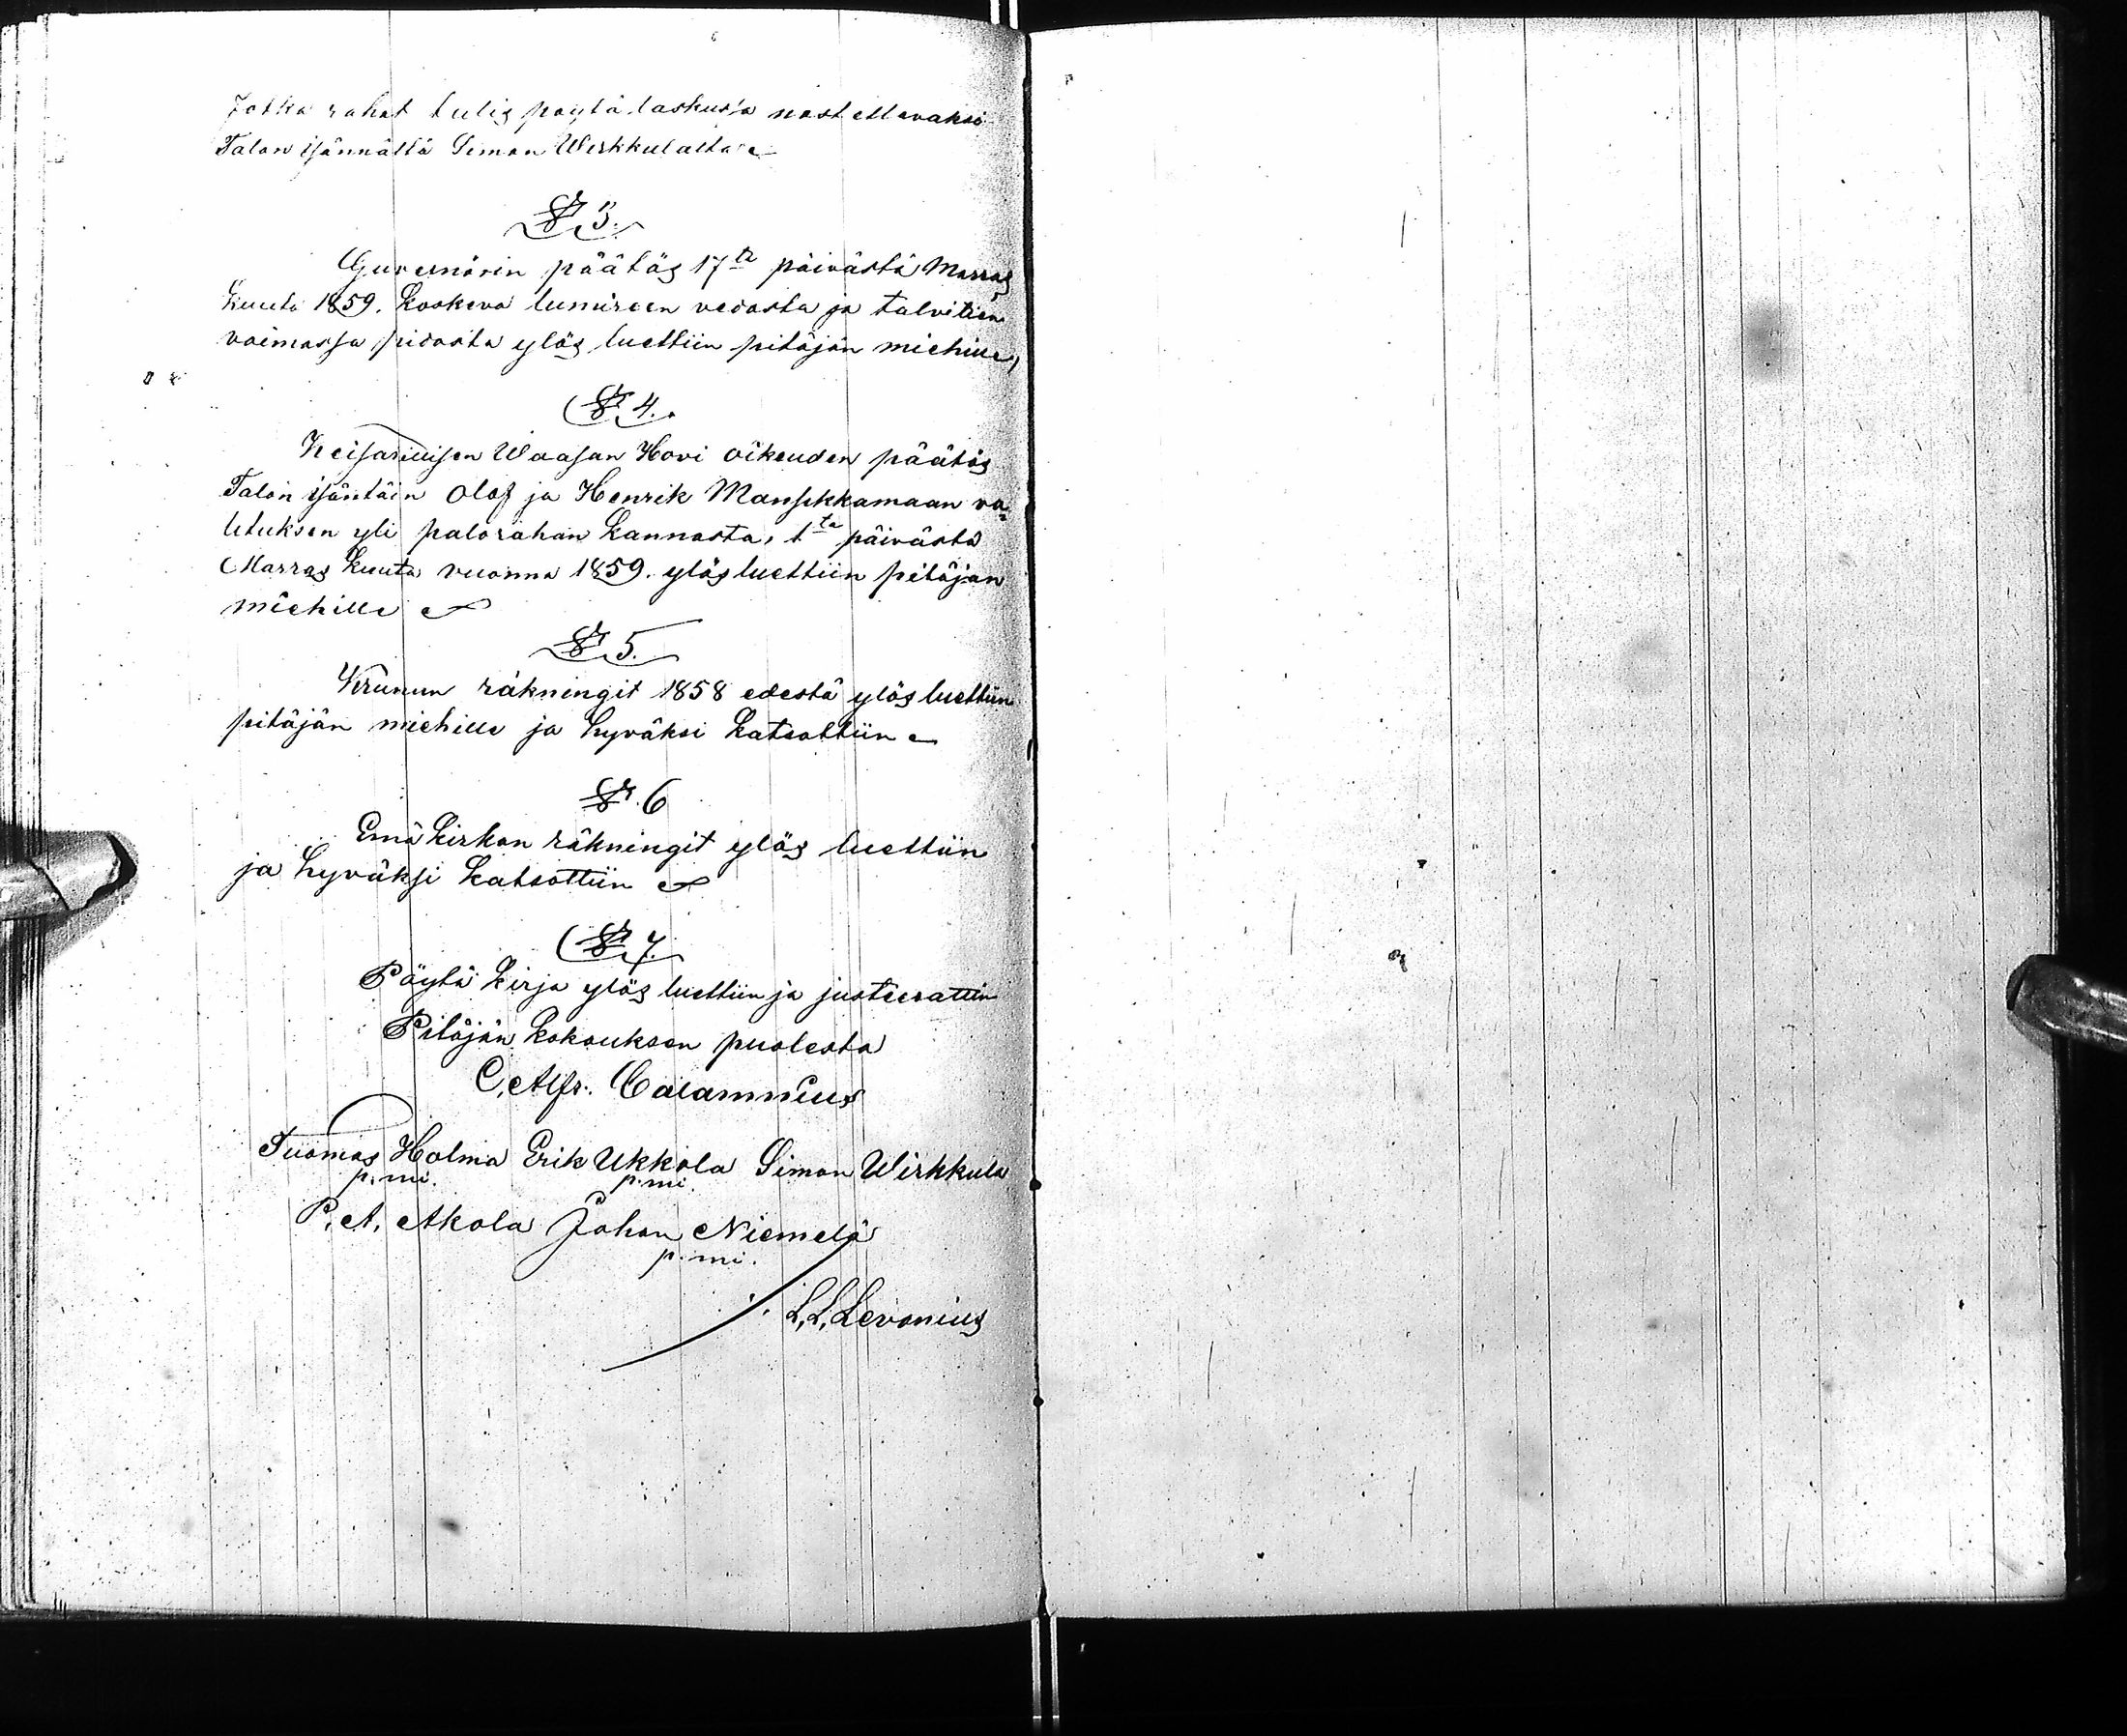 Jotka rahat tulis pöytä laskusa nostettavaksi
Talon isännältä Simon Wirkkulalta
§ 3.
Guvernörin päätös 17ta päivästä Marras
kuuta 1859. koskeva lumireen vedosta ja talvitien
voimassa pidosta ylös luettiin pitäjän miehille,
§ 4.
Keisarillisen Waasan Hovi oikeuden päätös
Talon isäntäin Olof ja Henrik Mansikkamaan va-
lituksen yli palorahan kannosta, 1ta päivästä
Marras kuuta vuonna 1859. ylös luettiin pitäjän
miehille
§ 5.
Krunun räkningit 1858 edestä ylös luettiin
pitäjän miehille ja hyväksi katsottiin
§. 6
Emä kirkon räkningit ylös luettiin
ja hyväksi katsottiin
§ 7.
Pöytä kirja ylös luettiin ja justeerattiin
Pitäjän kokouksen puolesta
C. Alfr. Calamnius
Tuomas Holma Erik Ukkola Simon Wirkkula
p. mi. p. mi.
P. A. Akola Johan Niemelä
p. mi.
L. L. Levonius